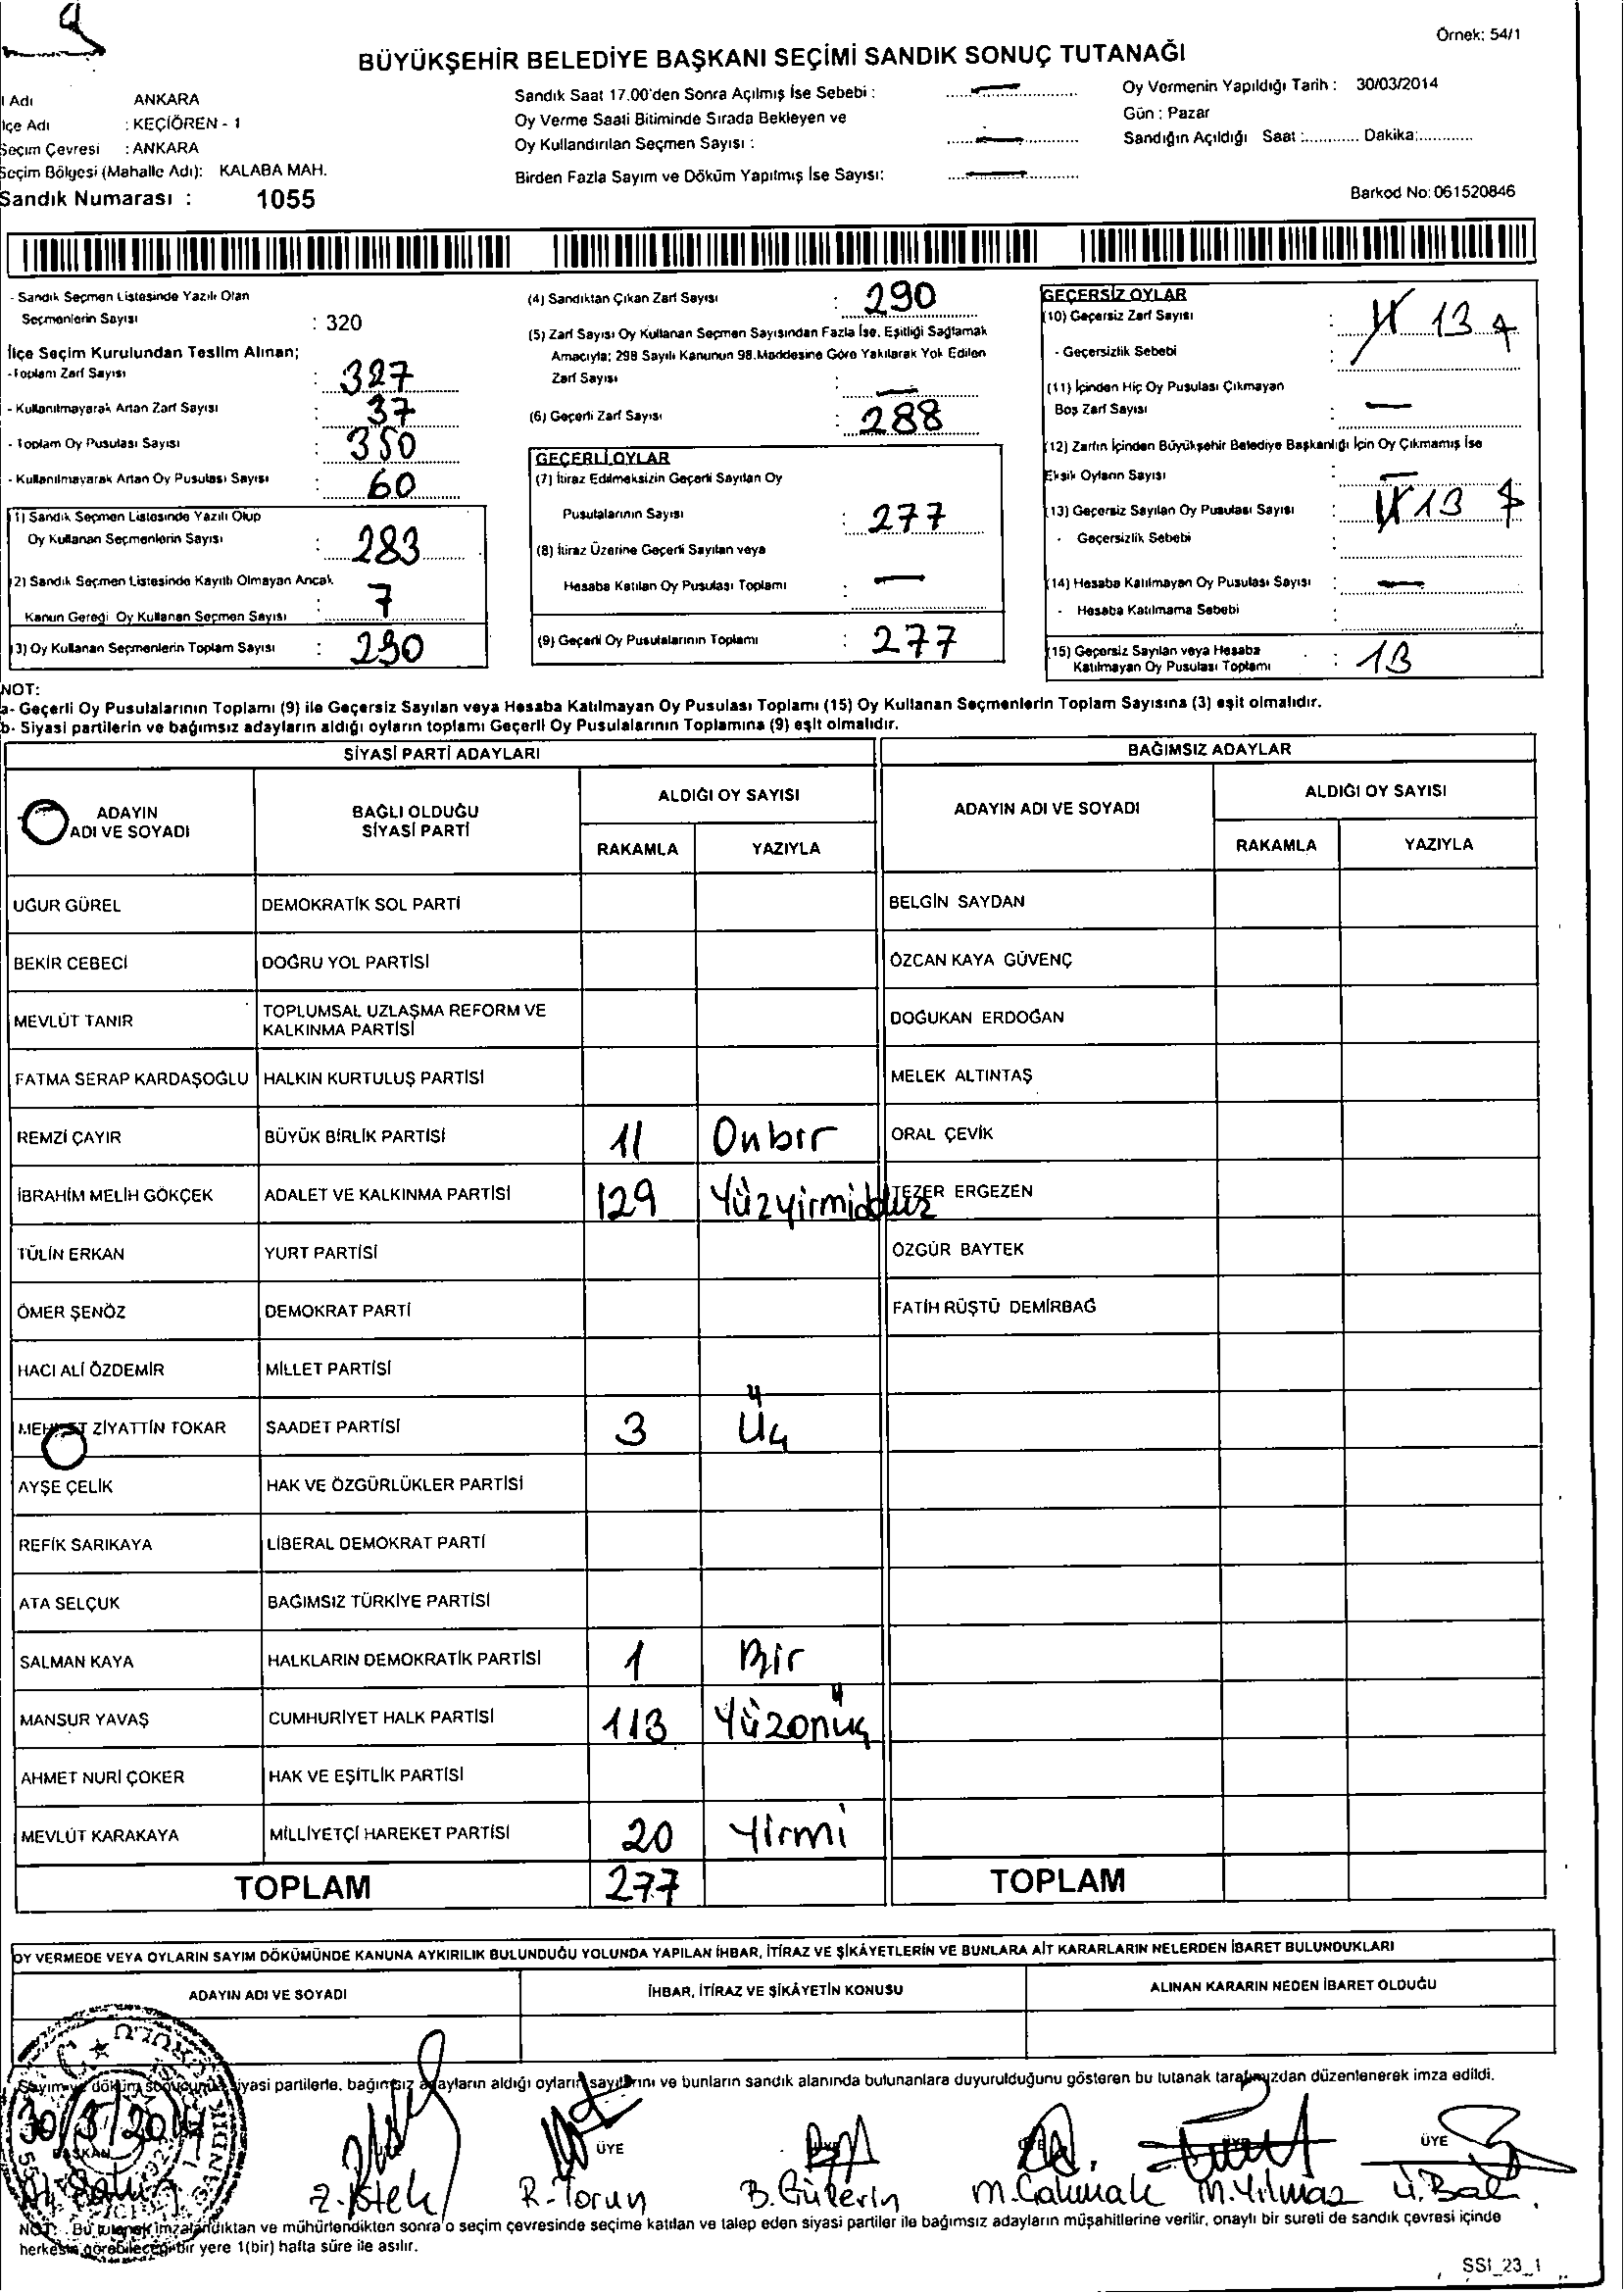 Örnek: 54/1
BÜYÜKŞEHİR BELEDİYE BAŞKANI SEÇİMİ SANDIK SONUÇ TUTANAĞI
l Adı ANKARA
lçe Adı : KEÇİÖREN - 1
Seçim Çevresi : ANKARA
Seçim Bölgesi (Mahalle Adı): KALABA MAH.
Sandık Numarası : 1055
Sandık Saat 17.00'den Sonra Açılmış İse Sebebi : —
Oy Verme Saati Bitiminde Sırada Bekleyen ve
Oy Kullandırılan Seçmen Sayısı : —
Birden Fazla Sayım ve Döküm Yapılmış İse Sayısı: —
Oy Vermenin Yapıldığı Tarih : 30/03/2014
Gün : Pazar
Sandığın Açıldığı Saat :............. Dakika:............
Barkod No: 061520846
- Sandık Seçmen Listesinde Yazılı Olan
Seçmenlerin Sayısı : 320
İlçe Seçim Kurulundan Teslim Alınan;
-Toplam Zarf Sayısı : 327
- Kullanılmayarak Artan Zarf Sayısı : 37
- Toplam Oy Pusulası Sayısı : 350
- Kullanılmayarak Artan Oy Pusulası Sayısı : 60
(1) Sandık Seçmen Listesinde Yazılı Olup
Oy Kullanan Seçmenlerin Sayısı : 283
(2) Sandık Seçmen Listesinde Kayıtlı Olmayan Ancak
Kanun Gereği Oy Kullanan Seçmen Sayısı : 7
(3) Oy Kullanan Seçmenlerin Toplam Sayısı : 290
(4) Sandıktan Çıkan Zarf Sayısı : 290
(5) Zarf Sayısı Oy Kullanan Seçmen Sayısından Fazla İse, Eşitliği Sağlamak
Amacıyla; 298 Sayılı Kanunun 98.Maddesine Göre Yakılarak Yok Edilen
Zarf Sayısı : —
(6) Geçerli Zarf Sayısı : 288
GEÇERLİ OYLAR
(7) İtiraz Edilmeksizin Geçerli Sayılan Oy
Pusulalarının Sayısı : 277
(8) İtiraz Üzerine Geçerli Sayılan veya
Hesaba Katılan Oy Pusulası Toplamı : —
(9) Geçerli Oy Pusulalarının Toplamı : 277
GEÇERSİZ OYLAR
(10) Geçersiz Zarf Sayısı : 13
- Geçersizlik Sebebi :
(11) İçinden Hiç Oy Pusulası Çıkmayan
Boş Zarf Sayısı : —
(12) Zarfın İçinden Büyükşehir Belediye Başkanlığı İçin Oy Çıkmamış İse
Eksik Oyların Sayısı : —
(13) Geçersiz Sayılan Oy Pusulası Sayısı : 13
- Geçersizlik Sebebi :
(14) Hesaba Katılmayan Oy Pusulası Sayısı : —
- Hesaba Katılmama Sebebi :
(15) Geçersiz Sayılan veya Hesaba
Katılmayan Oy Pusulası Toplamı : 13
NOT:
a- Geçerli Oy Pusulalarının Toplamı (9) ile Geçersiz Sayılan veya Hesaba Katılmayan Oy Pusulası Toplamı (15) Oy Kullanan Seçmenlerin Toplam Sayısına (3) eşit olmalıdır.
b- Siyasi partilerin ve bağımsız adayların aldığı oyların toplamı Geçerli Oy Pusulalarının Toplamına (9) eşit olmalıdır.
SİYASİ PARTİ ADAYLARI
ADAYIN ADI VE SOYADI BAĞLI OLDUĞU SİYASİ PARTİ ALDIĞI OY SAYISI
RAKAMLA YAZIYLA
UĞUR GÜREL DEMOKRATİK SOL PARTİ
BEKİR CEBECİ DOĞRU YOL PARTİSİ
MEVLÜT TANIR TOPLUMSAL UZLAŞMA REFORM VE KALKINMA PARTİSİ
FATMA SERAP KARDAŞOĞLU HALKIN KURTULUŞ PARTİSİ
REMZİ ÇAYIR BÜYÜK BİRLİK PARTİSİ 11 Onbır
İBRAHİM MELİH GÖKÇEK ADALET VE KALKINMA PARTİSİ 129 Yüzyirmidokuz
TÜLİN ERKAN YURT PARTİSİ
ÖMER ŞENÖZ DEMOKRAT PARTİ
HACI ALİ ÖZDEMİR MİLLET PARTİSİ
MEHMET ZİYATTİN TOKAR SAADET PARTİSİ 3 Üç
AYŞE ÇELİK HAK VE ÖZGÜRLÜKLER PARTİSİ
REFİK SARIKAYA LİBERAL DEMOKRAT PARTİ
ATA SELÇUK BAĞIMSIZ TÜRKİYE PARTİSİ
SALMAN KAYA HALKLARIN DEMOKRATİK PARTİSİ 1 Bir
MANSUR YAVAŞ CUMHURİYET HALK PARTİSİ 113 Yüzonüç
AHMET NURİ ÇOKER HAK VE EŞİTLİK PARTİSİ
MEVLÜT KARAKAYA MİLLİYETÇİ HAREKET PARTİSİ 20 Yirmi
TOPLAM 277
BAĞIMSIZ ADAYLAR
ADAYIN ADI VE SOYADI ALDIĞI OY SAYISI
RAKAMLA YAZIYLA
BELGİN SAYDAN
ÖZCAN KAYA GÜVENÇ
DOĞUKAN ERDOĞAN
MELEK ALTINTAŞ
ORAL ÇEVİK
TEZER ERGEZEN
ÖZGÜR BAYTEK
FATİH RÜŞTÜ DEMİRBAĞ
TOPLAM
OY VERMEDE VEYA OYLARIN SAYIM DÖKÜMÜNDE KANUNA AYKIRILIK BULUNDUĞU YOLUNDA YAPILAN İHBAR, İTİRAZ VE ŞİKÂYETLERİN VE BUNLARA AİT KARARLARIN NELERDEN İBARET BULUNDUKLARI
ADAYIN ADI VE SOYADI İHBAR, İTİRAZ VE ŞİKÂYETİN KONUSU ALINAN KARARIN NEDEN İBARET OLDUĞU
Sayım ve döküm sonucunun siyasi partilerle, bağımsız adayların aldığı oyların sayılarını ve bunların sandık alanında bulunanlara duyurulduğunu gösteren bu tutanak tarafımızdan düzenlenerek imza edildi.
30/3/2014
BAŞKAN ÜYE ÜYE
Z. İstek R. Torun B. Gülerin M. Çakmak M. Yılmaz
NOT: Bu tutanak imzalandıktan ve mühürlendikten sonra o seçim çevresinde seçime katılan ve talep eden siyasi partiler ile bağımsız adayların müşahitlerine verilir, onaylı bir sureti de sandık çevresi içinde
herkesin görebileceği bir yere 1(bir) hafta süre ile asılır.
SSI_23_1